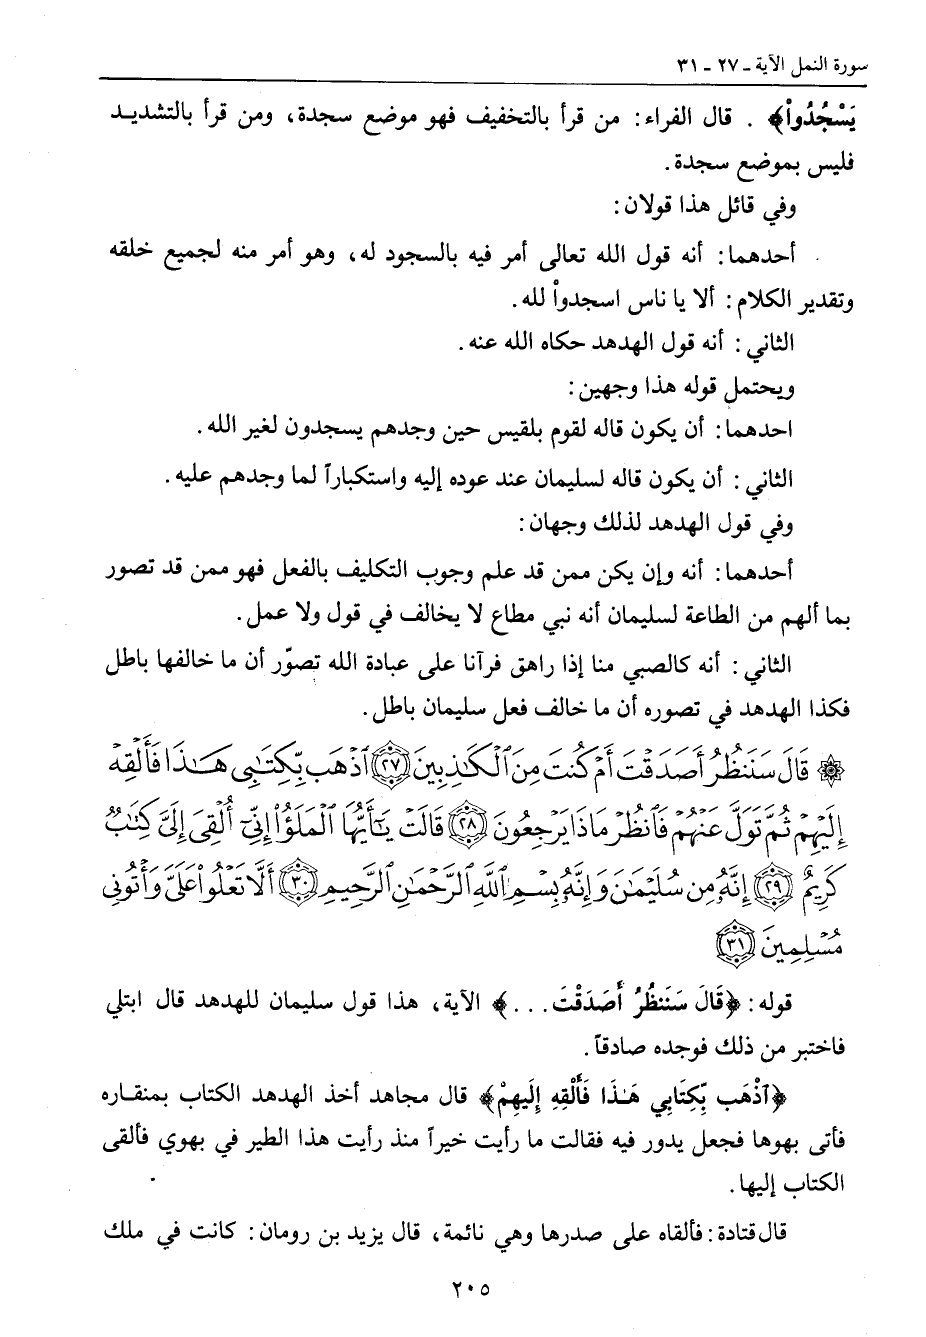 سورة النمل الآية ـ ٢٧ ـ ٣١
يَسْجُدُواْ﴾ . قال الفراء: من قرأ بالتخفيف فهو موضع سجدة، ومن قرأ بالتشديد
فليس بموضع سجدة.
وفي قائل هذا قولان:
أحدهما: أنه قول الله تعالى أمر فيه بالسجود له، وهو أمر منه لجميع خلقه
وتقدير الكلام: ألا يا ناس اسجدواْ لله.
الثاني: أنه قول الهدهد حكاه الله عنه.
ويحتمل قوله هذا وجهين:
احدهما: أن يكون قاله لقوم بلقيس حين وجدهم يسجدون لغير الله.
الثاني: أن يكون قاله لسليمان عند عوده إليه واستكباراً لما وجدهم عليه.
وفي قول الهدهد لذلك وجهان:
أحدهما: أنه وإن يكن ممن قد علم وجوب التكليف بالفعل فهو ممن قد تصور
بما ألهم من الطاعة لسليمان أنه نبي مطاع لا يخالف في قول ولا عمل.
الثاني: أنه كالصبي منا إذا راهق فرآنا على عبادة الله تصوّر أن ما خالفها باطل
فكذا الهدهد في تصوره أن ما خالف فعل سليمان باطل.
۞ قَالَ سَنَنظُرُ أَصَدَقْتَ أَمْ كُنتَ مِنَ ٱلْكَٰذِبِينَ ﴿٢٧﴾ ٱذْهَب بِّكِتَٰبِى هَٰذَا فَأَلْقِهْ
إِلَيْهِمْ ثُمَّ تَوَلَّ عَنْهُمْ فَٱنظُرْ مَاذَا يَرْجِعُونَ ﴿٢٨﴾ قَالَتْ يَٰٓأَيُّهَا ٱلْمَلَؤُا۟ إِنِّىٓ أُلْقِىَ إِلَىَّ كِتَٰبٌ
كَرِيمٌ ﴿٢٩﴾ إِنَّهُۥ مِن سُلَيْمَٰنَ وَإِنَّهُۥ بِسْمِ ٱللَّهِ ٱلرَّحْمَٰنِ ٱلرَّحِيمِ ﴿٣٠﴾ أَلَّا تَعْلُوا۟ عَلَىَّ وَأْتُونِى
مُسْلِمِينَ ﴿٣١﴾
قوله: ﴿قَالَ سَنَنظُرُ أَصَدَقْتَ...﴾ الآية، هذا قول سليمان للهدهد قال ابتلي
فاختبر من ذلك فوجده صادقاً.
﴿ٱذْهَب بِّكِتَابِي هَـٰذَا فَأَلْقِهِ إِلَيهِمْ﴾ قال مجاهد أخذ الهدهد الكتاب بمنقاره
فأتى بهوها فجعل يدور فيه فقالت ما رأيت خيراً منذ رأيت هذا الطير في بهوي فألقى
الكتاب إليها.
قال قتادة: فألقاه على صدرها وهي نائمة، قال يزيد بن رومان: كانت في ملك
٢٠٥